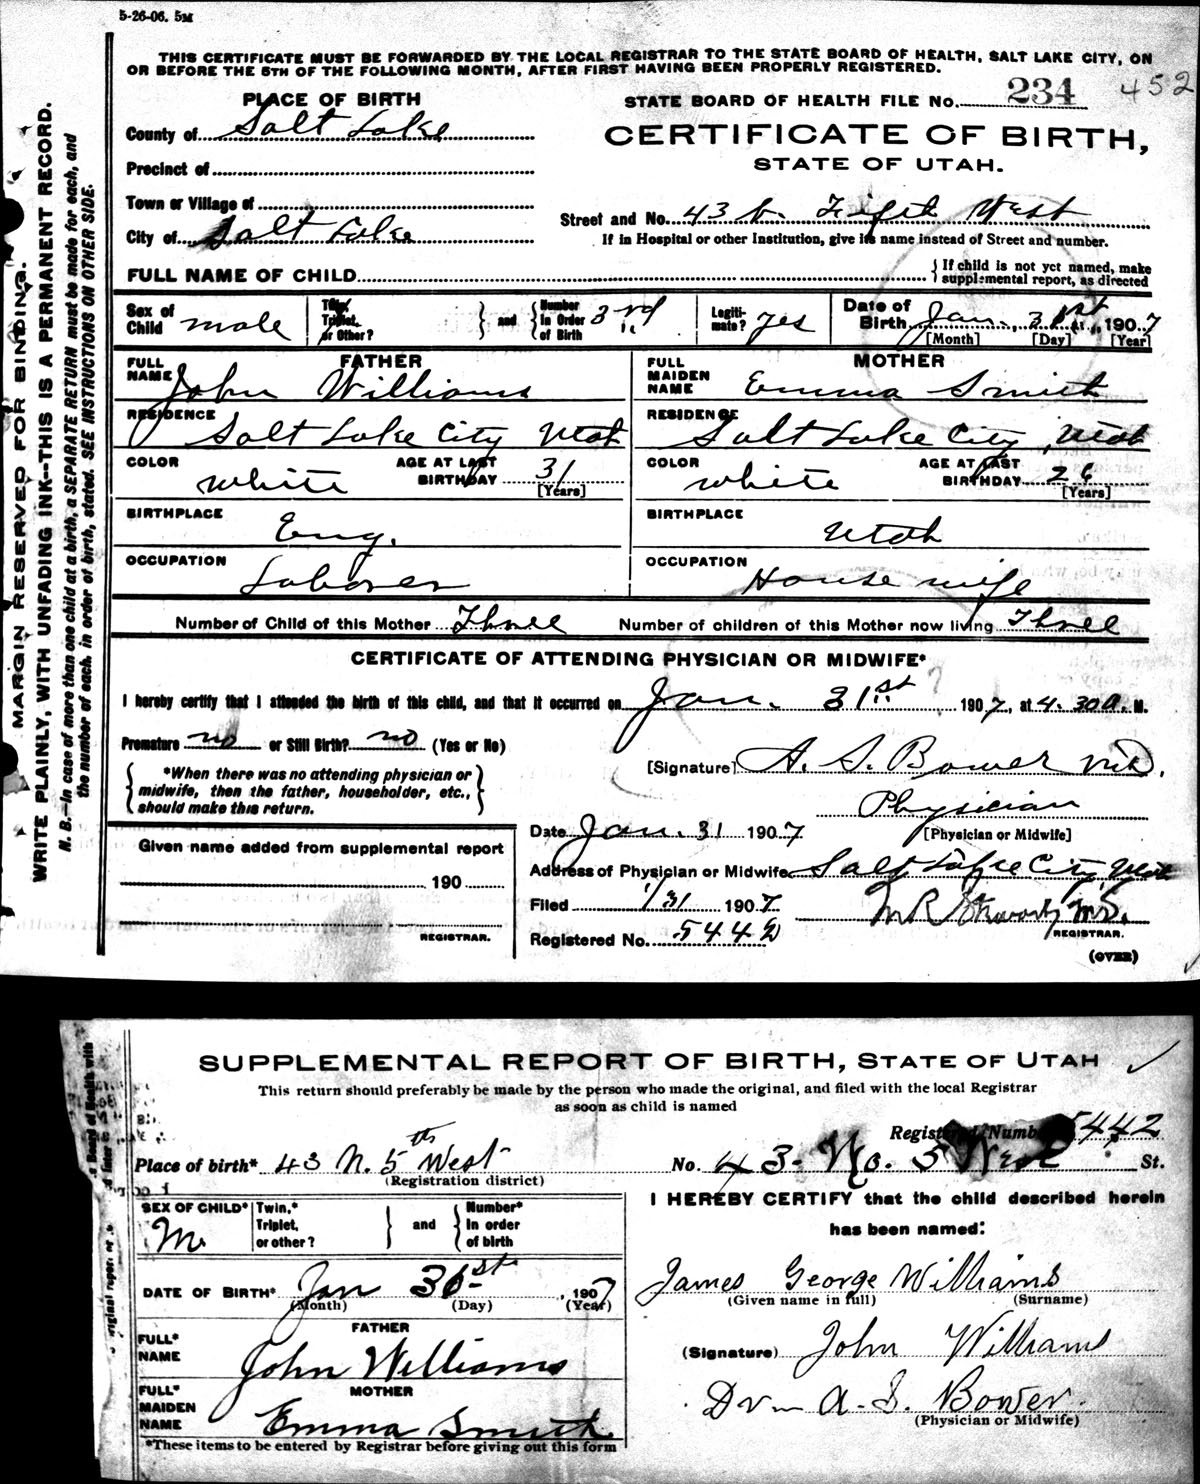 5-26-06. 5M
THIS CERTIFICATE MUST BE FORWARDED BY THE LOCAL REGISTRAR TO THE STATE BOARD OF HEALTH, SALT LAKE CITY, ON
OR BEFORE THE 5TH OF THE FOLLOWING MONTH, AFTER FIRST HAVING BEEN PROPERLY REGISTERED.
MARGIN RESERVED FOR BINDING.
WRITE PLAINLY, WITH UNFADING INK--THIS IS A PERMANENT RECORD.
N. B.--In case of more than one child at a birth, a SEPARATE RETURN must be made for each, and
the number of each, in order of birth, stated. SEE INSTRUCTIONS ON OTHER SIDE.
PLACE OF BIRTH
County of Salt Lake
Precinct of
Town or Village of
City of Salt Lake
STATE BOARD OF HEALTH FILE No. 234 452
CERTIFICATE OF BIRTH,
STATE OF UTAH.
Street and No. 43 Fifth West
If in Hospital or other Institution, give its name instead of Street and number.
FULL NAME OF CHILD
{ If child is not yet named, make
supplemental report, as directed
Sex of Child male
Twin, Triplet, or Other?
and
Number in Order of Birth 3rd
Legitimate? yes
Date of Birth Jan., 31st, 1907
[Month] [Day] [Year]
FATHER
FULL NAME John Williams
RESIDENCE Salt Lake City Utah
COLOR white
AGE AT LAST BIRTHDAY 31
[Years]
BIRTHPLACE Eng.
OCCUPATION Laborer
MOTHER
FULL MAIDEN NAME Emma Smith
RESIDENCE Salt Lake City, Utah
COLOR white
AGE AT LAST BIRTHDAY 26
[Years]
BIRTHPLACE Utah
OCCUPATION House wife
Number of Child of this Mother Three Number of children of this Mother now living Three
CERTIFICATE OF ATTENDING PHYSICIAN OR MIDWIFE*
I hereby certify that I attended the birth of this child, and that it occurred on Jan. 31st 1907, at 4.30 a. M.
Premature no or Still Birth? no (Yes or No)
{ *When there was no attending physician or
midwife, then the father, householder, etc.,
should make this return. }
[Signature] A. S. Bower M.D.
Physician
[Physician or Midwife]
Date Jan. 31 1907
Address of Physician or Midwife Salt Lake City, Utah
Filed 1/31 1907
M R Stewart, M.D.
REGISTRAR.
Registered No. 5442
(OVER)
Given name added from supplemental report
190
REGISTRAR.
SUPPLEMENTAL REPORT OF BIRTH, STATE OF UTAH
This return should preferably be made by the person who made the original, and filed with the local Registrar
as soon as child is named
Registered Number 5442
Place of birth* 43 N. 5th West
(Registration district)
No. 43- No. 5 West St.
SEX OF CHILD* M.
Twin,* Triplet, or other?
and
Number* in order of birth
DATE OF BIRTH* Jan 31st, 1907
(Month) (Day) (Year)
FATHER
FULL* NAME John Williams
MOTHER
FULL* MAIDEN NAME Emma Smith
*These items to be entered by Registrar before giving out this form
I HEREBY CERTIFY that the child described herein
has been named:
James George Williams
(Given name in full) (Surname)
(Signature) John Williams
Dr. A. S. Bower.
(Physician or Midwife)